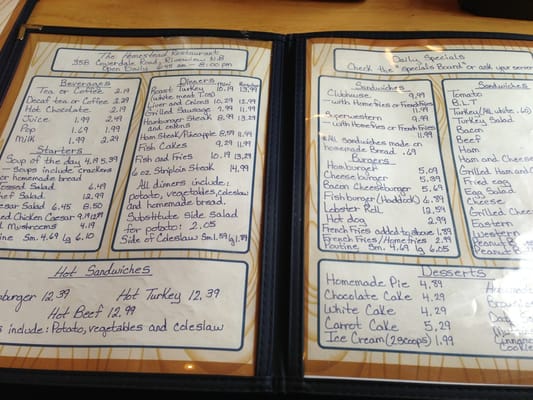 The Homestead Restaurant
358 Coverdale Road, Riverview N.B
Open Daily 6:45 am - 8:00 pm
Beverages
Tea or Coffee 2.19
Decaf tea or Coffee 2.29
Hot Chocolate 2.19
Juice 1.99 2.49
Pop 1.69 1.99
Milk 1.99 2.29
Starters
Soup of the day 4.19 5.39
- Soups include crackers
or homemade bread
Tossed Salad 6.49
Chef Salad 12.99
Caesar Salad 6.45 8.50
Chicken Caesar 9.19 12.89
Mushrooms 4.19
Poutine Sm. 4.69 lg 6.10
Dinners
Roast Turkey 10.29 13.99
(white meat 7.05)
Liver and Onions 10.29
Grilled Sausage 7.99 11.99
Hamburger Steak 8.99 13.29
and onions
Ham Steak/Pineapple 8.59
Fish Cakes 9.29 11.99
Fish and Fries 10.19 13.29
6 oz Striploin Steak 14.99
All dinners include:
potato, vegetables, coleslaw
and homemade bread.
Substitute side salad
for potato: 2.05
Side of Coleslaw Sm 1.59 lg 1.89
Hot Sandwiches
Hamburger 12.39
Hot Turkey 12.39
Hot Beef 12.99
include: Potato, vegetables and coleslaw
Daily Specials
Check the "specials Board" or ask your server
Sandwiches
Clubhouse 9.99
- with Homefries or French Fries
Superwestern 9.99
- with Homefries or French Fries
11.99
*All sandwiches made on
homemade Bread .69
Burgers
Hamburger 5.09
Cheeseburger 5.39
Bacon Cheeseburger 5.69
Fishburger (Haddock) 6.89
Lobster Roll 12.59
Hot dog 2.99
French Fries added to above 1.89
French Fries/Home fries 2.99
Poutine Sm. 4.69 lg 6.05
Sandwiches
Tomato
B.L.T
Turkey (All white .60)
Turkey Salad
Bacon
Beef
Ham
Ham and Cheese
Grilled Ham and
Fried egg
Egg Salad
Cheese
Grilled Cheese
Eastern
Western
Peanut B
Peanut B
Desserts
Homemade Pie 4.89
Chocolate Cake 4.29
White Cake 4.29
Carrot Cake 5.29
Ice Cream (2 scoops) 1.99
Homemade
Brownies
Cinnamon
Cookie